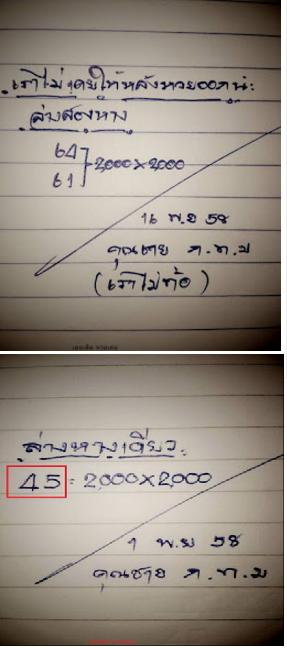 เราไม่เคยให้หลังหวยออกน่ะ
ล่างสองหาง
64
61
2,000×2,000
16 พ.ย 58
คุณชาย ก.ท.ม
(เราไม่ท้อ)
ล่างหางเดียว
45 = 2,000×2,000
1 พ.ย 58
คุณชาย ก.ท.ม